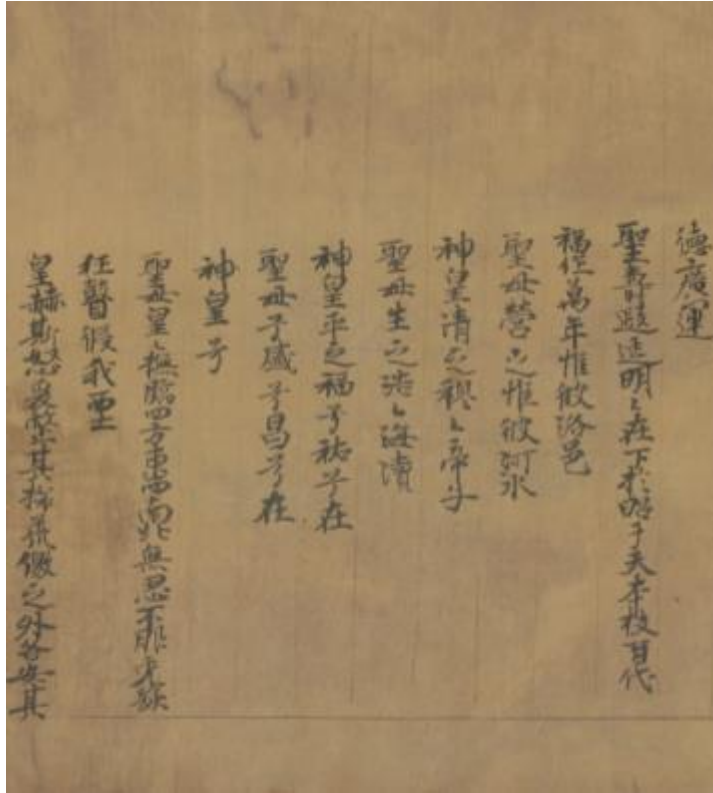 德廣運
聖壽遐延明〻在下於昭于天本枝百代
福祚萬年惟彼洛邑
聖母營之惟彼河水
神皇清之穆〻帝子
聖母生之浩〻海瀆
神皇平之福兮祐兮在
聖母子盛兮昌兮在
神皇兮
聖母皇〻撫臨四方東西南北無思不服
狂瞽假我聖
皇赫斯怒爰整其旅荒徼之外各安其